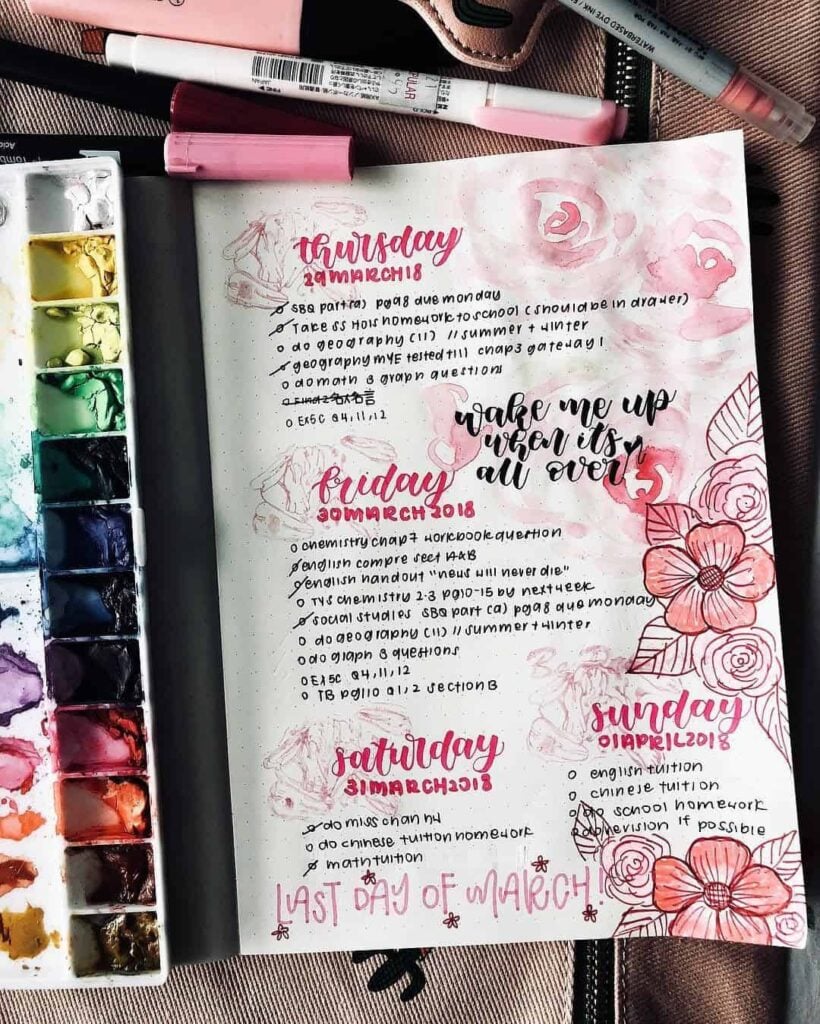 WATERBASED DYE INK
JAPAN
PULAR
Tombow
thursday
29 MARCH 18
SBQ part (a) pg98 due monday
Take SS HOIS homework to school (should be in drawer)
do geography (11) // summer + winter
geography MYE tested till chap3 gateway 1
do math 3 graph questions
Ex5C Q4, 11, 12
wake me up
when its
all over
friday
30 MARCH 2018
chemistry chap7 workbook question
english compre sect A&B
english handout "news will never die"
TYS chemistry 2.3 pg10-15 by next week
social studies SBQ part (a) pg98 due monday
do geography (11) // summer + winter
do graph 3 questions
Ex5C Q4, 11, 12
TB pg110 Q1, 2 section B
saturday
31 MARCH 2018
do miss chan hw
do chinese tuition homework
math tuition
sunday
01 APRIL 2018
english tuition
chinese tuition
do school homework
do revision if possible
LAST DAY OF MARCH!